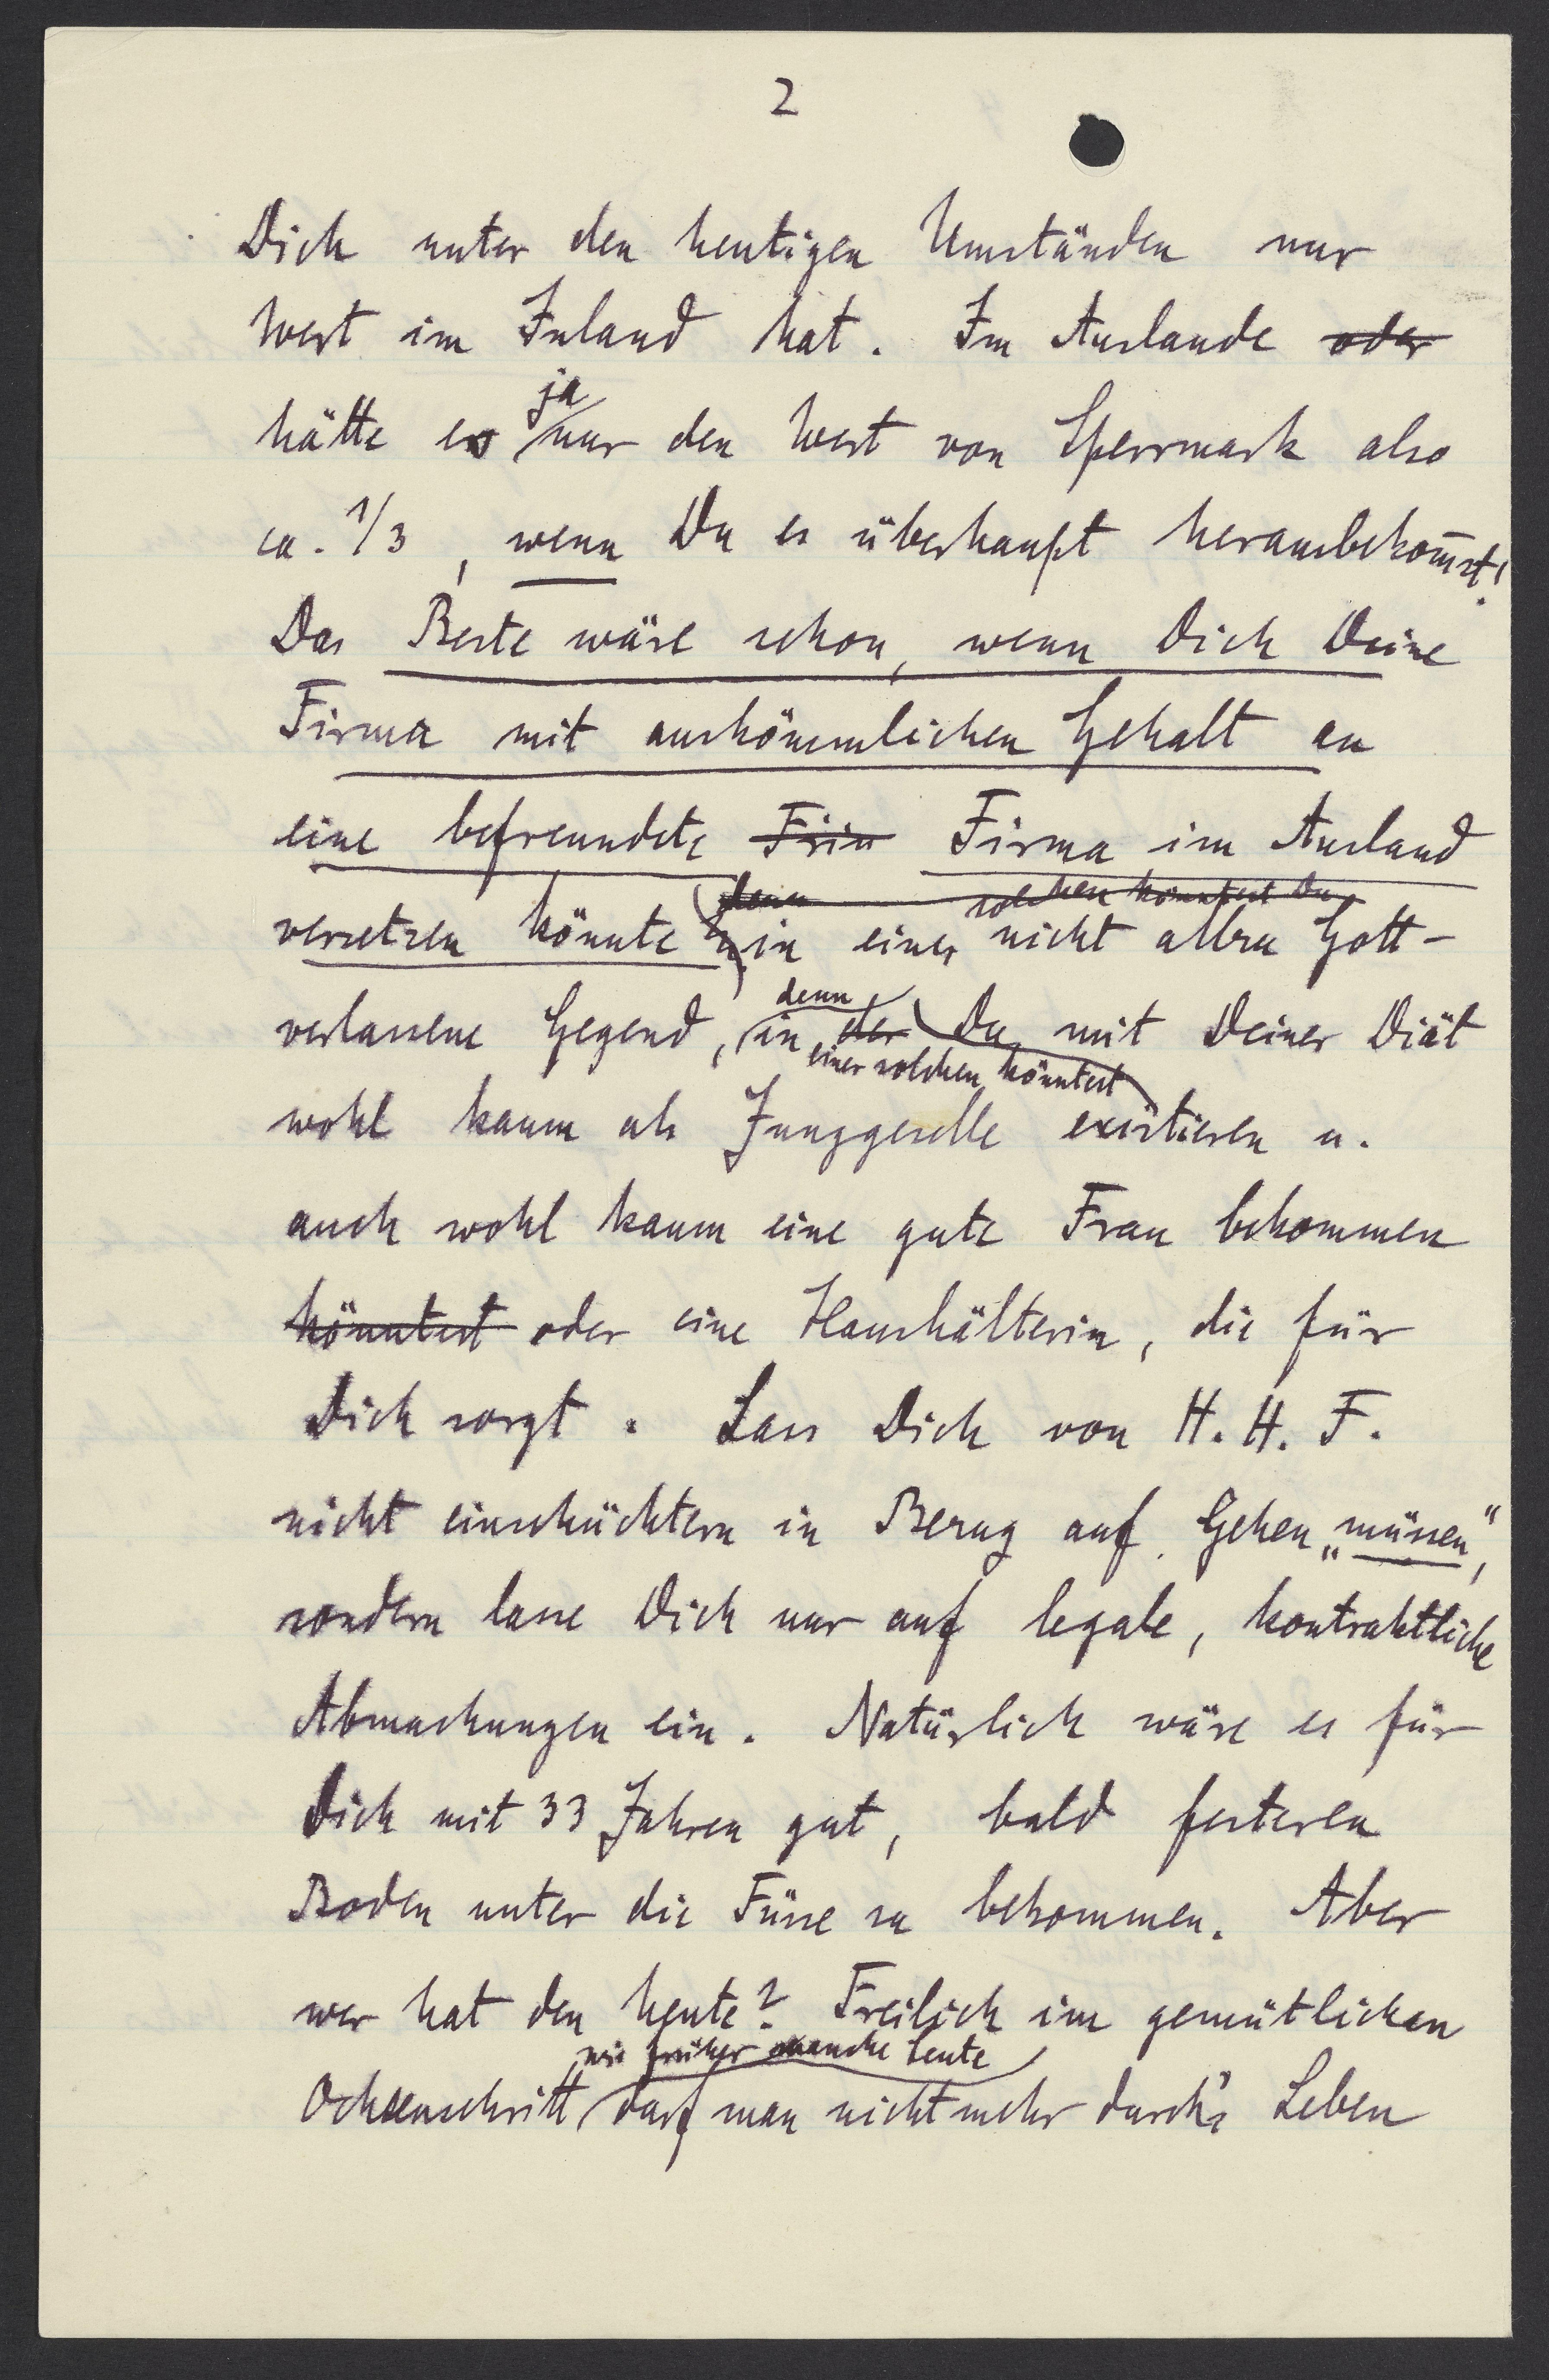 2
Dich unter den heutigen Umständen nur
Wert im Inland hat. Im Auslande oder
ja
hätte es nur den Wert von Sperrmark also
ca. 1/3, wenn Du es überhaupt herausbekom̅st!
Das Beste wäre schon, wenn Dich Deine
Firma mit auskömmlichen Gehalt an
eine befreundete Frin Firma im Ausland
denn solchen könntest Du
versetzen könnte in einer nicht allzu Gott-
denn
verlassene Gegend, in der Du mit Deiner Diät
einer solchen könntest
wohl kaum als Junggeselle existieren u.
auch wohl kaum eine gute Frau bekommen
könntest oder eine Haushälterin, die für
Dich sorgt. Lass Dich von H. H. F.
nicht einschüchtern in Bezug auf Gehen „müssen“,
sondern lasse Dich nur auf legale, kontraktliche
Abmachungen ein. Natürlich wäre es für
Dich mit 33 Jahren gut, bald festeren
Boden unter die Füsse zu bekommen. Aber
wer hat den heute? Freilich im gemütlichen
wie früher manche Leute
Ochsenschritt darf man nicht mehr durch's Leben